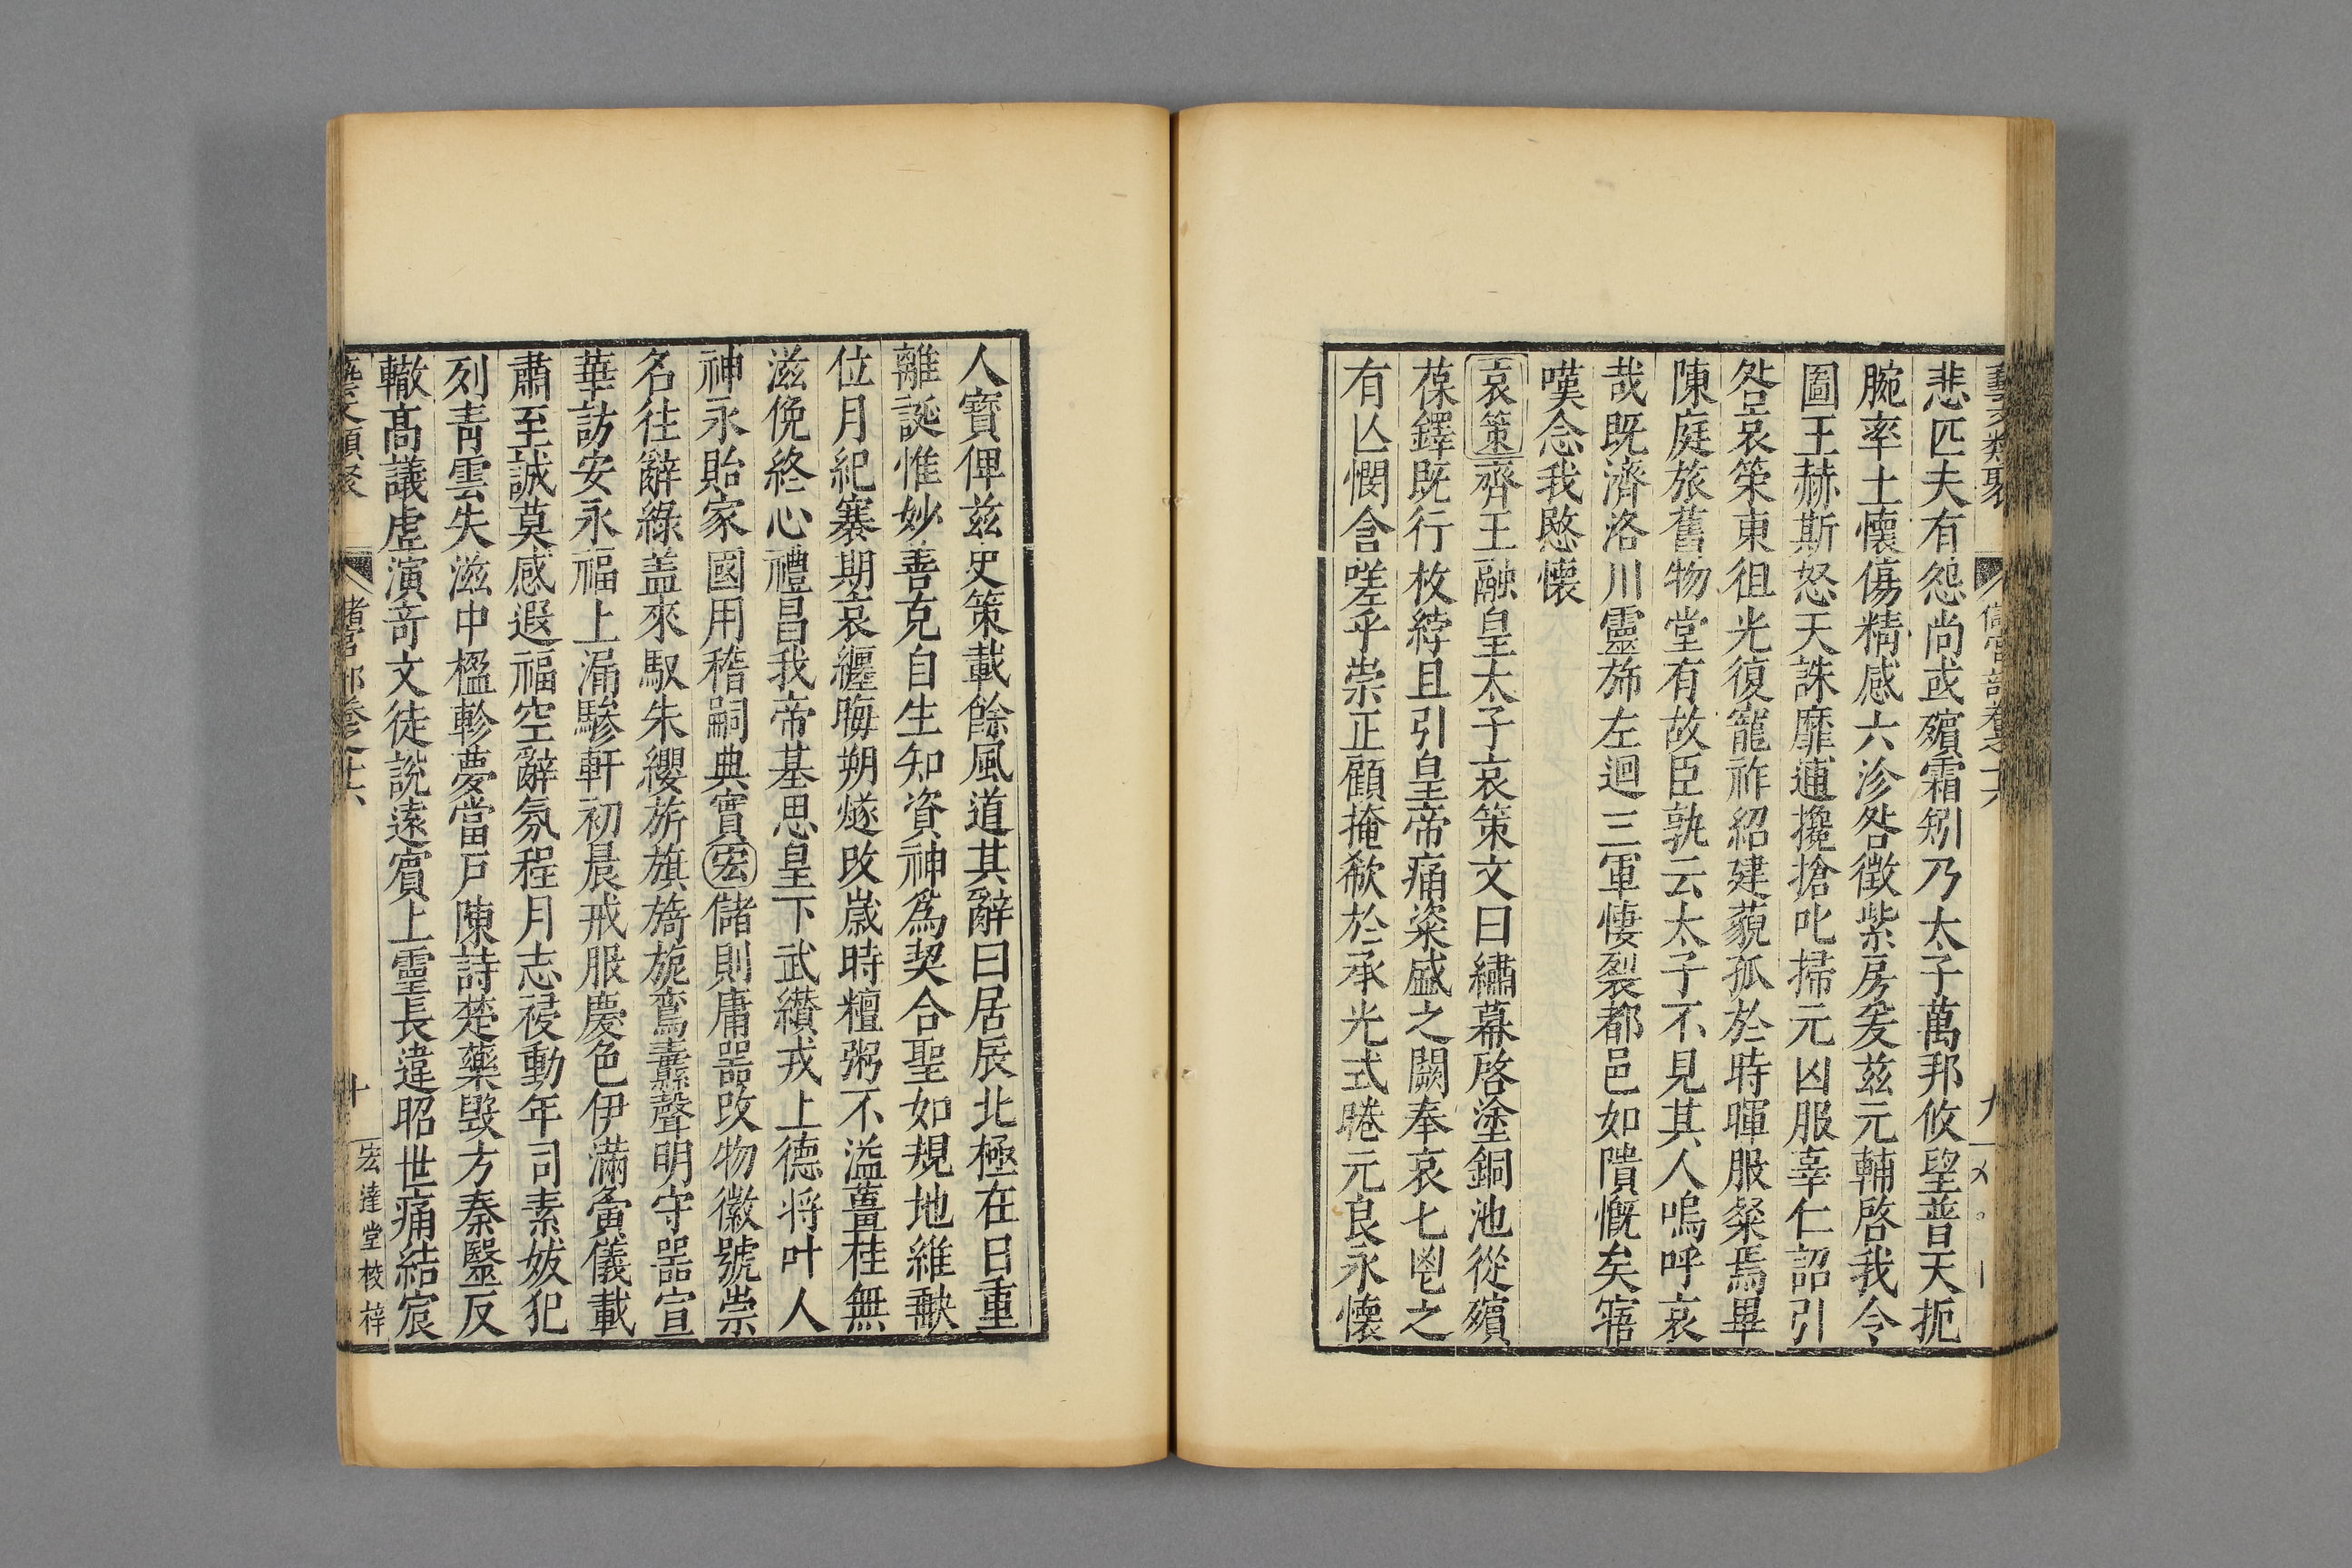 藝文類聚 儲宮部卷之十六 九
悲匹夫有怨尚或殞霜矧乃太子萬邦攸望普天扼
腕率土懷傷精感六沴咎徵紫房爰茲元輔啓我令
圖王赫斯怒天誅靡逋攙搶叱掃元凶服辜仁詔引
咎哀策東徂光復寵祚紹建藐孤於時暉服粲焉畢
陳庭旅舊物堂有故臣孰云太子不見其人嗚呼哀
哉既濟洛川靈斾左迴三軍悽裂都邑如隤慨矣寤
嘆念我愍懷
哀策齊王融皇太子哀策文曰繡幕啓塗銅池從殯
葆鐸既行枚綍且引皇帝痛粢盛之闕奉哀七鬯之
有亾憫含嗟乎崇正顧掩欷於承光式睠元良永懷
人寶俾茲史策載餘風道其辭曰居辰北極在日重
離誕惟妙善克自生知資神爲契合聖如規地維䡄
位月紀褰期哀纏晦朔燧改嵗時䊲粥不溢薑桂無
滋俛終心禮昌我帝基思皇下武纉戎上德将叶人
神永貽家國用稽嗣典實宏儲則庸噐改物徽號崇
名往辭綠盖來馭朱纓旂旗旖旎鸞纛聲明守噐宣
華訪安永福上漏驂軒初晨戒服慶色伊滿夤儀載
肅至誠莫感遐福空辭氛程月志祲動年司素妭犯
列靑雲失滋中楹軫夢當戶陳詩楚藥毀方秦毉反
轍髙議虚演竒文徒説遠賔上靈長違昭世痛結宸
藝文類聚 儲宮部卷之十六 十 宏達堂校梓